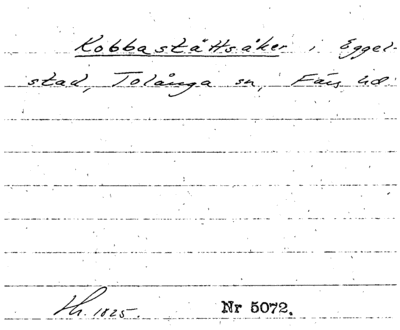 Kobbaståttsåker i Eggel-
stad, Tolånga sn, Färs hd.
Nr 5072.